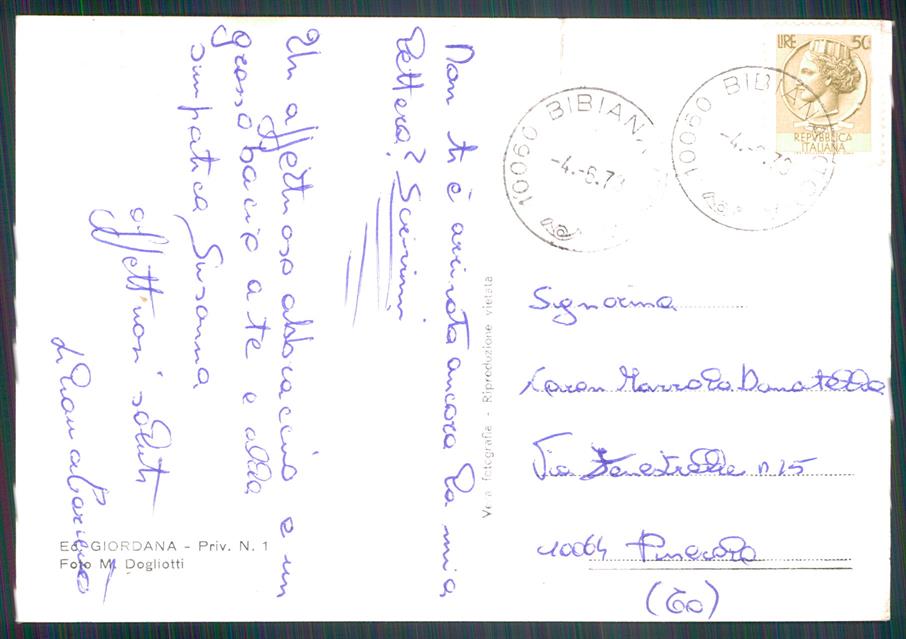 Non ti è arrivata ancora la mia
lettera? Scrivimi
Un affettuoso abbraccio e un
grosso bacio a te e alla
simpatica Susanna
affettuosi saluti
Ed. GIORDANA - Priv. N. 1
Foto M. Dogliotti
Vera fotografia - Riproduzione vietata
10060 BIBIANA
-4.-6.7
10060 BIBIANA
LIRE 50
REPVBBLICA
ITALIANA
Signorina
Caron Marzola Donatella
Via Fenestrelle n. 25
10064 Pinerolo
(To)